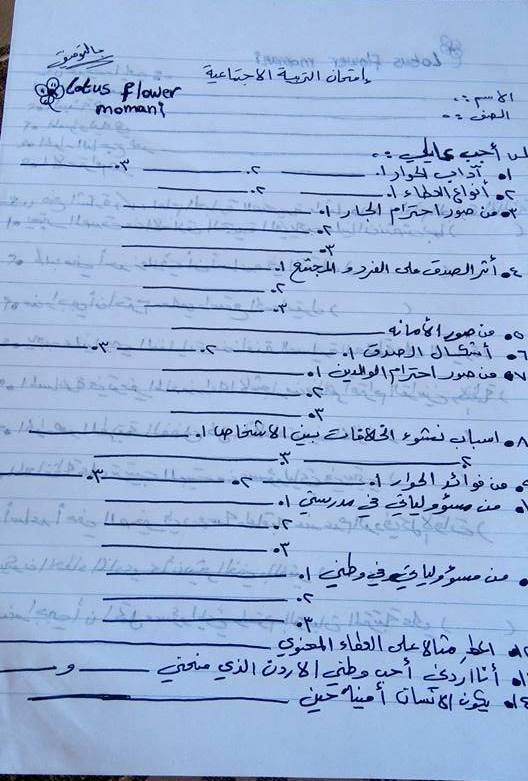 بالتوفيق
Lotus flower
momani
إمتحان التربية الاجتماعية
الاسم :.
الصف :.
س١ أجب عمايلي :.
١. آداب الحوار ١. ــــــ ٢. ــــــ ٣. ــــــ
٢. أنواع العطاء ١. ــــــ ٢. ــــــ
٣. من صور احترام الجار ١. ــــــ
٢. ــــــ
٣. ــــــ
٤. أثر الصدق على الفرد و المجتمع ١. ــــــ
٢. ــــــ
٣. ــــــ
٥. من صور الأمانه ــــــ
٦. أشكال الصدق ١. ــــــ ٢. ــــــ ٣. ــــــ
٧. من صور احترام الوالدين ١. ــــــ
٢. ــــــ
٣. ــــــ
٨. اسباب نشوء الخلافات بين الاشخاص ١. ــــــ
٢. ــــــ ٣. ــــــ
٩. من فوائد الحوار ١. ــــــ ٢. ــــــ ٣. ــــــ
من مسؤولياتي في مدرستي ١. ــــــ
٢. ــــــ
٣. ــــــ
من مسؤولياتي في وطني ١. ــــــ
٢. ــــــ
٣. ــــــ
١٢. اعط مثالا على العطاء المعنوي ــــــ
أنا اردني أحب وطني الاردن الذي منحني ــــــ و ــــــ
١٤. يكون الانسان أمينا حين ــــــ